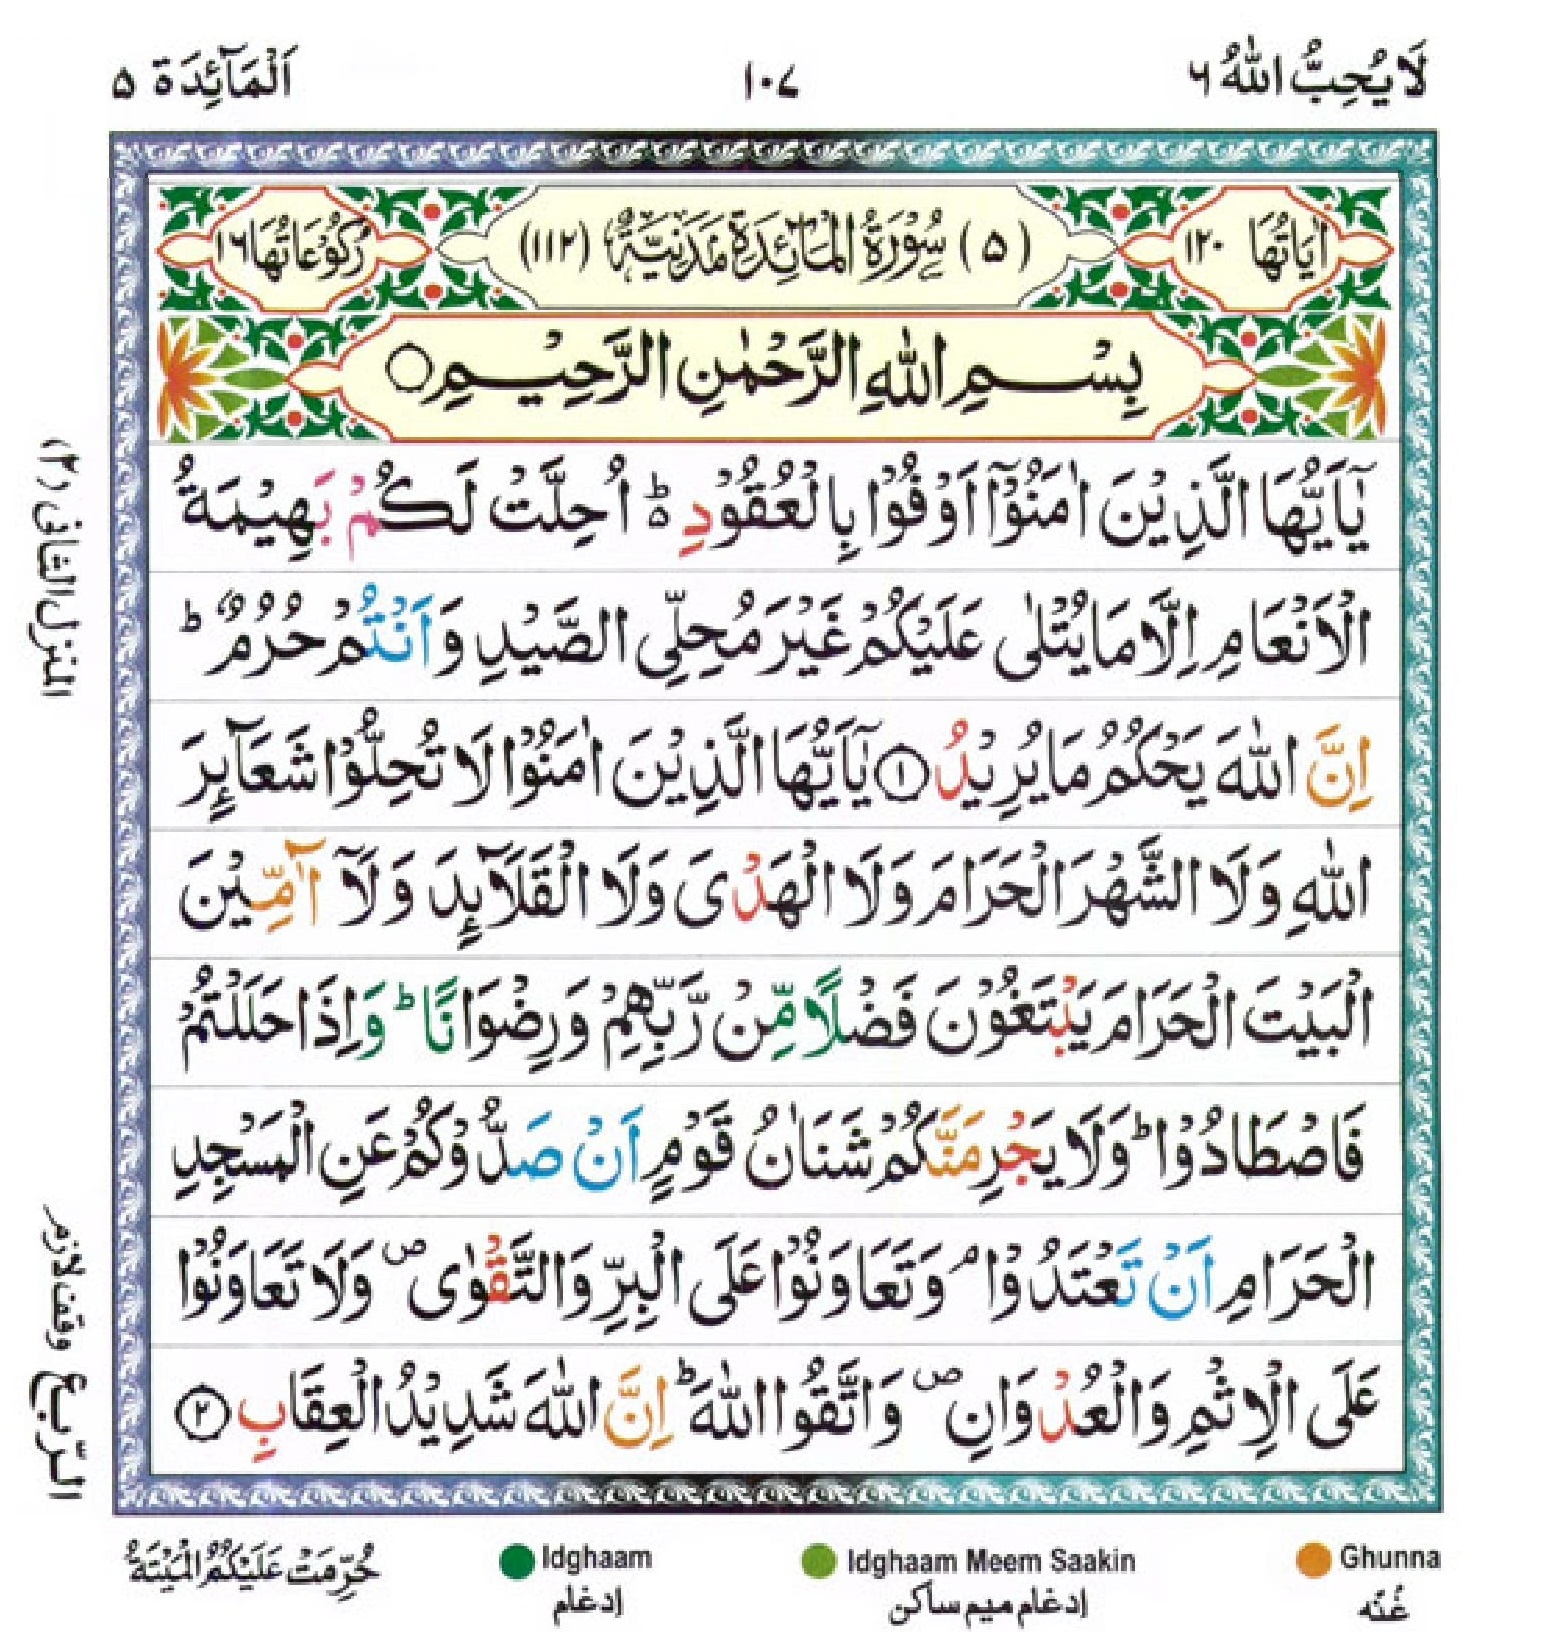 لَا يُحِبُّ اللهُ ٦
١٠٧
اَلْمَآئِدَة ٥
اٰيَاتُهَا ١٢٠
(٥) سُوْرَةُ الْمَآئِدَةِ مَدَنِيَّةٌ (١١٢)
رُكُوْعَاتُهَا ١٦
بِسْمِ اللهِ الرَّحْمٰنِ الرَّحِيْمِ ○
يٰٓاَيُّهَا الَّذِيْنَ اٰمَنُوْٓا اَوْفُوْا بِالْعُقُوْدِ ؕ اُحِلَّتْ لَكُمْ بَهِيْمَةُ
الْاَنْعَامِ اِلَّا مَا يُتْلٰى عَلَيْكُمْ غَيْرَ مُحِلِّى الصَّيْدِ وَاَنْتُمْ حُرُمٌ ؕ
اِنَّ اللهَ يَحْكُمُ مَا يُرِيْدُ ① يٰٓاَيُّهَا الَّذِيْنَ اٰمَنُوْا لَا تُحِلُّوْا شَعَآئِرَ
اللهِ وَلَا الشَّهْرَ الْحَرَامَ وَلَا الْهَدْىَ وَلَا الْقَلَآئِدَ وَلَآ آٰمِّيْنَ
الْبَيْتَ الْحَرَامَ يَبْتَغُوْنَ فَضْلًا مِّنْ رَّبِّهِمْ وَرِضْوَانًا ؕ وَاِذَا حَلَلْتُمْ
فَاصْطَادُوْا ؕ وَلَا يَجْرِمَنَّكُمْ شَنَاٰنُ قَوْمٍ اَنْ صَدُّوْكُمْ عَنِ الْمَسْجِدِ
الْحَرَامِ اَنْ تَعْتَدُوْا ۘ وَتَعَاوَنُوْا عَلَى الْبِرِّ وَالتَّقْوٰى ص وَلَا تَعَاوَنُوْا
عَلَى الْاِثْمِ وَالْعُدْوَانِ ص وَاتَّقُوا اللهَ ؕ اِنَّ اللهَ شَدِيْدُ الْعِقَابِ ②
المنزل الثانى (٢)
وقف لازم
الرّبع
Ghunna
غُنّه
Idghaam Meem Saakin
إدغام ميم ساكن
Idghaam
إدغام
حُرِّمَتْ عَلَيْكُمُ الْمَيْتَةُ